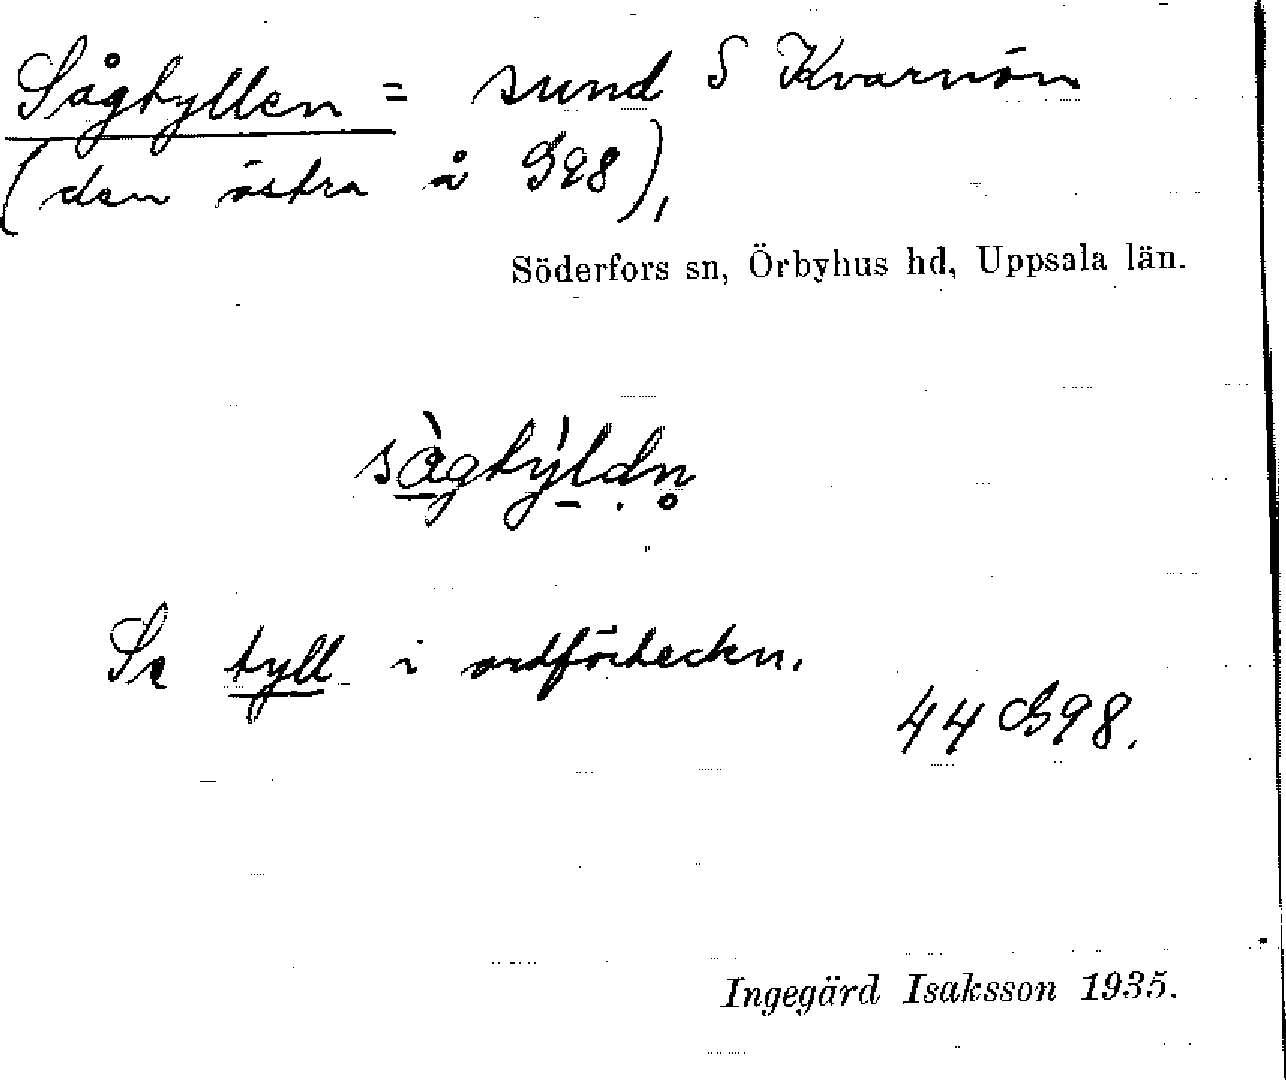 Sågtyllen = sund S Kvarnön
(den östra å GE8),
Söderfors sn, Örbyhus hd, Uppsala län.
sàgtỳldn̥
Se tyll i ordförteckn.
44 G98.
Ingegärd Isaksson 1935.